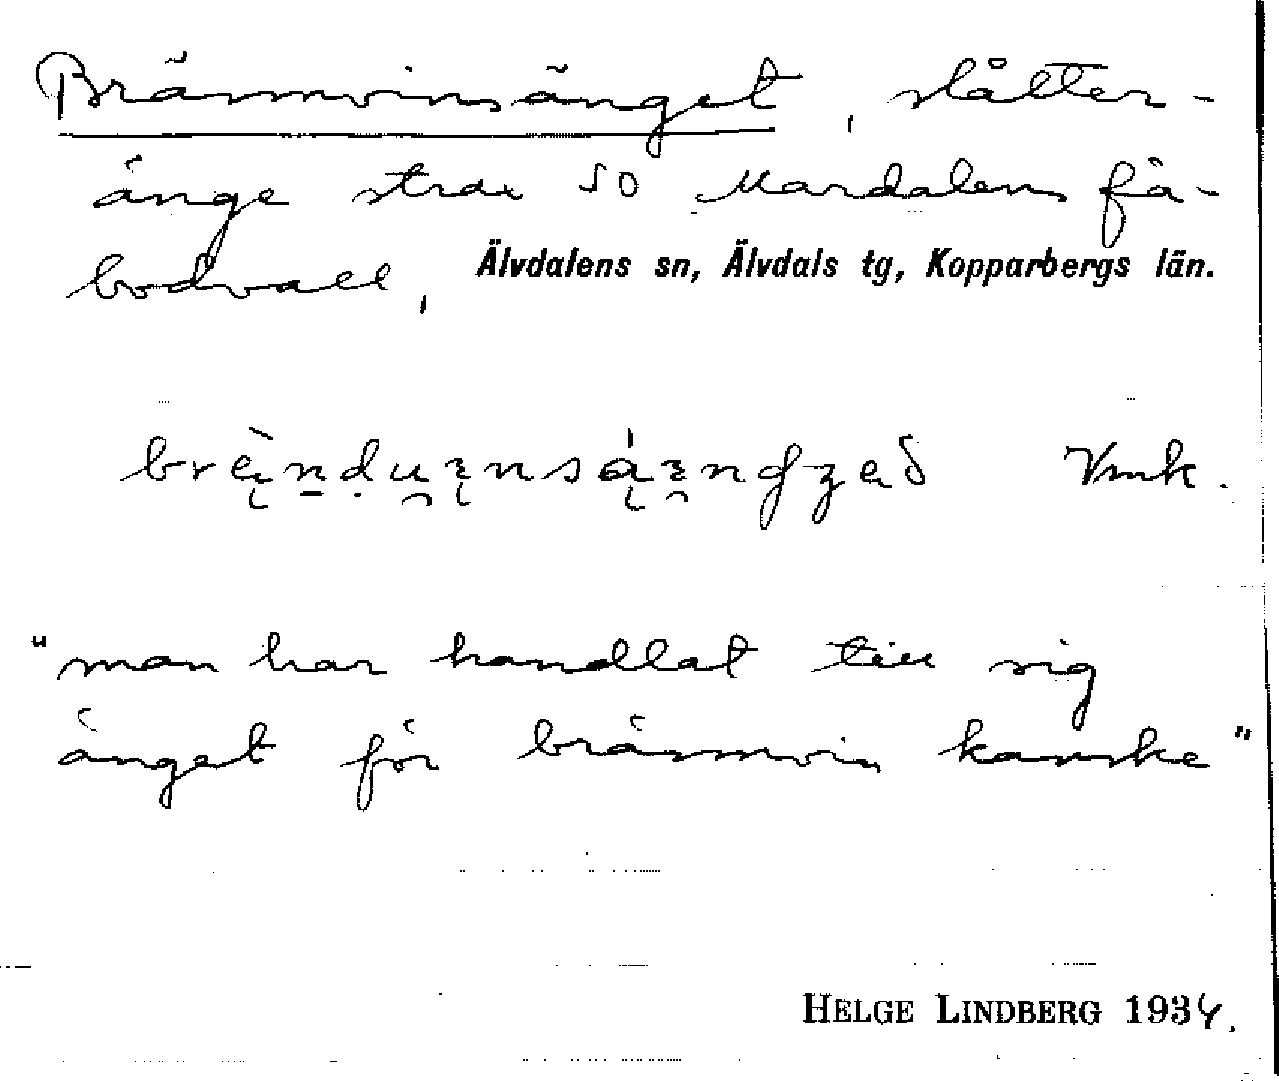 Brännvinsänget, slåtter-
änge strax SO Mardalens fä-
bodvall, Älvdalens sn, Älvdals tg, Kopparbergs län.
Vmk.
"man har handlat till sig
änget för brännvin kanske"
HELGE LINDBERG 1934.